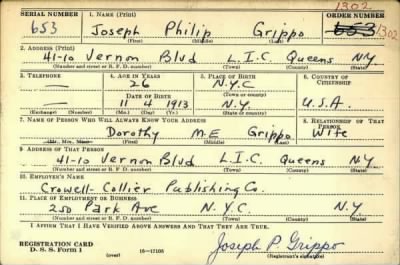 1302
SERIAL NUMBER 1. NAME (Print) ORDER NUMBER
653 Joseph Philip Grippo 653 1302
(First) (Middle) (Last)
2. ADDRESS (Print)
41-10 Vernon Blvd L.I.C. Queens NY
(Number and street or R. F. D. number) (Town) (County) (State)
3. TELEPHONE 4. AGE IN YEARS 5. PLACE OF BIRTH 6. COUNTRY OF CITIZENSHIP
— 26 N.Y.C
DATE OF BIRTH (Town or county)
— 11 4 1913 N.Y. U.S.A.
(Exchange) (Number) (Mo.) (Day) (Yr.) (State or country)
7. NAME OF PERSON WHO WILL ALWAYS KNOW YOUR ADDRESS 8. RELATIONSHIP OF THAT PERSON
Dorothy M.E Grippo Wife
(Mr., Mrs., Miss) (First) (Middle) (Last)
9. ADDRESS OF THAT PERSON
41-10 Vernon Blvd L.I.C. Queens N.Y
(Number and street or R. F. D. number) (Town) (County) (State)
10. EMPLOYER'S NAME
Crowell-Collier Publishing Co.
11. PLACE OF EMPLOYMENT OR BUSINESS
250 Park Ave N.Y.C. N.Y.
(Number and street or R. F. D. number) (Town) (County) (State)
I AFFIRM THAT I HAVE VERIFIED ABOVE ANSWERS AND THAT THEY ARE TRUE.
REGISTRATION CARD
D. S. S. Form 1 (over) 16—17105 Joseph P. Grippo
(Registrant's signature)